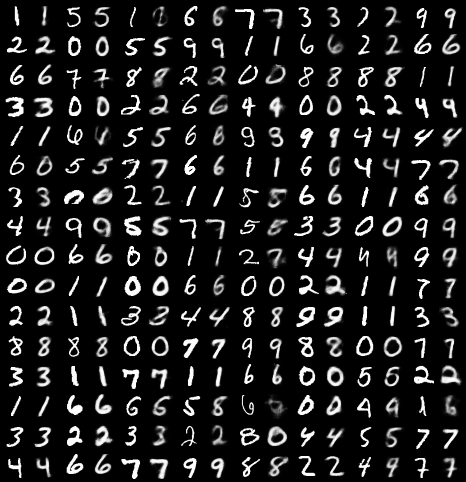 1 1 5 5 1 8 6 6 7 7 3 3 2 2 9 9
2 2 0 0 5 5 9 9 1 1 6 6 2 2 6 6
6 6 7 7 8 8 2 2 0 0 8 8 8 8 1 1
3 3 0 0 2 2 6 6 4 4 0 0 2 2 9 9
1 1 6 4 5 5 6 8 9 3 9 9 4 4 4 4
6 0 5 5 7 7 6 6 1 1 6 0 4 4 7 7
3 3 0 0 2 2 1 1 5 8 6 6 1 1 6 6
4 4 9 9 5 5 7 7 5 8 3 3 0 0 9 9
0 0 6 6 0 0 1 1 2 7 4 4 4 9 9
0 0 1 1 0 0 6 6 0 0 2 2 1 1 7 7
2 2 1 1 3 3 4 4 8 8 9 9 1 1 3 3
8 8 8 8 0 0 7 7 9 9 8 8 0 0 7 7
3 3 1 1 7 7 1 1 6 6 0 0 5 5 2 2
1 1 6 6 6 6 5 8 6 0 0 9 9 1 6
3 3 2 2 3 3 2 2 8 0 4 4 5 5 7 7
4 4 6 6 7 7 9 9 8 8 2 2 4 9 7 7